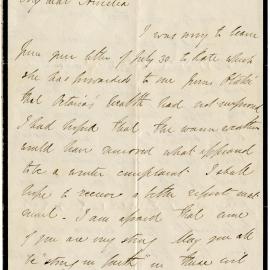 My dear Amelia
I was sorry to learn
from your letter of July 30. to hand which
she has forwarded to me from
that Octavia's health had not improved
I had hoped that the warm weather
would have removed what appeared
to be a winter complaint I shall
hope to receive a better report next
mail. I am afraid that none
of you are very strong May you all
be "strong in faith" in these evil